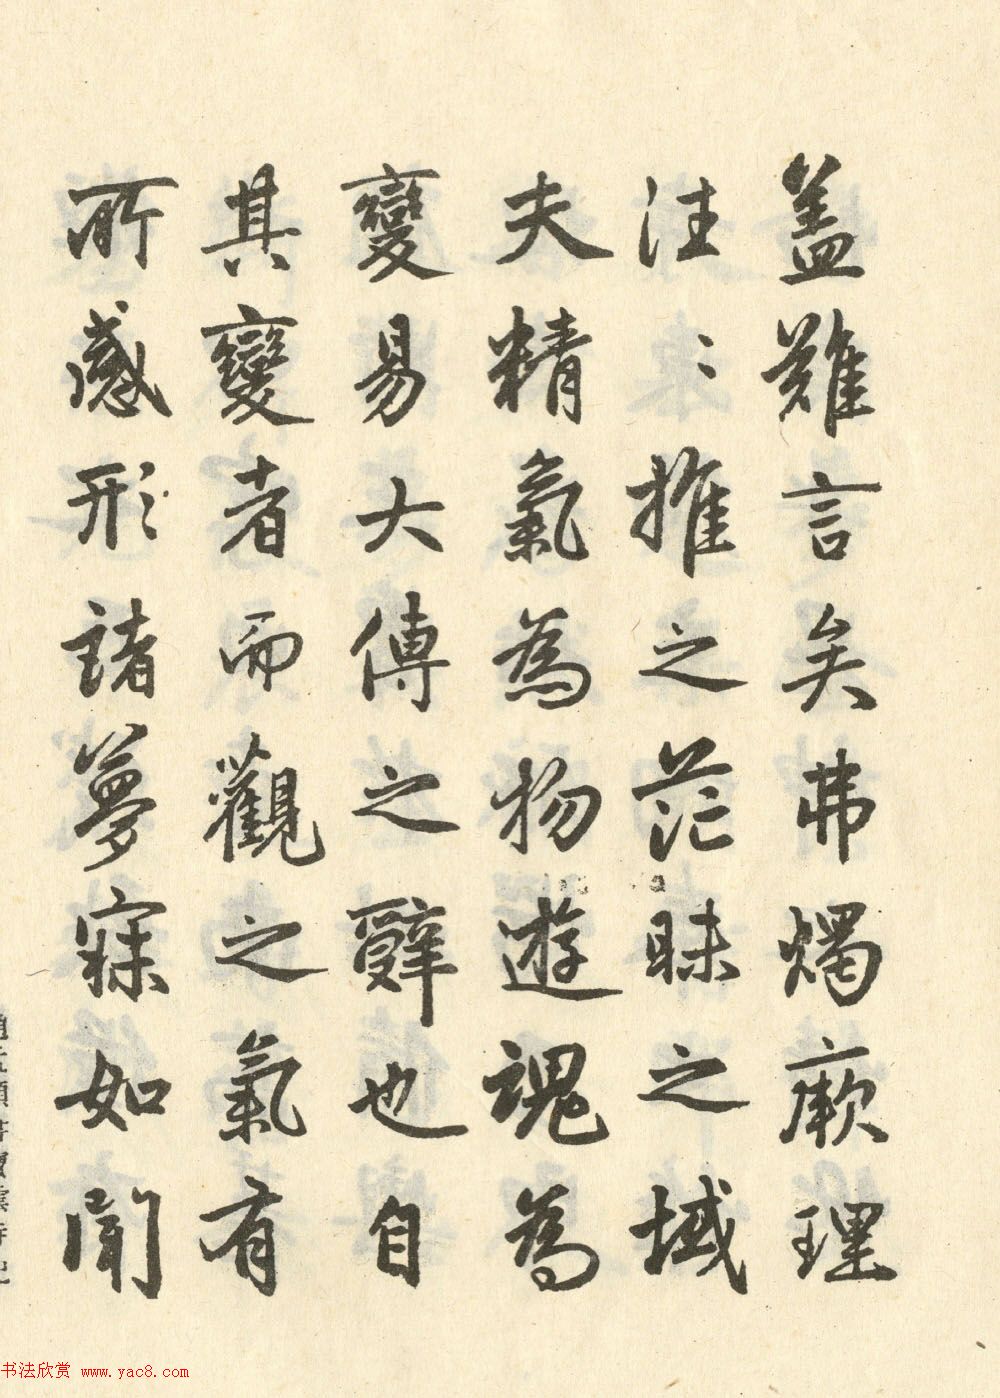 蓋難言矣弗燭厥理
注〻推之茫昧之域
夫精氣為物遊魂為
變易大傳之辭也自
其變者而觀之氣有
所感形諸夢寐如聞
书法欣赏 www.yac8.com